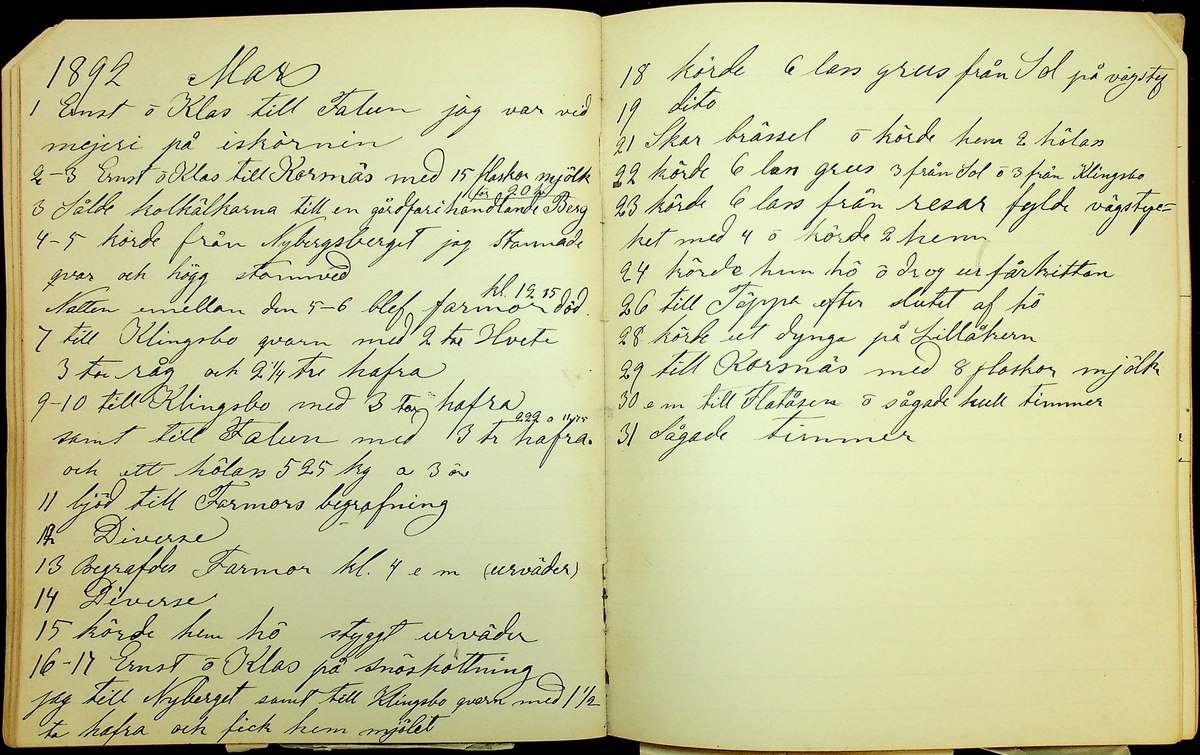 1892 Mars
1 Ernst o Klas till Falun jag var vid
mejeri på iskörnin
2-3 Ernst o Klas till Korsnäs med 15 flaskor mjölk
för 20 kr
3 Sålde kolkälkarna till en gårdfarihandlande Berg
4-5 körde från Nybergsberget jag stannade
qvar och högg stamved
kl. 12 15
Natten emellan den 5-6 blef farmor död.
7 till Klingsbo qvarn med 2 tnr Hvete
3 tnr råg och 2 1/4 tnr hafra
9-10 till Klingsbo med 3 tnr hafra
samt till Falun med 13 tr hafra.
och ett hölass 525 kg a 3 ör
11 bjöd till Farmors begrafning
12 Diverse
13 Begrafdes Farmor kl. 4 e m (urväder)
14 Diverse
15 körde hem hö styggt urväder
16-17 Ernst o Klas på snöskottning
jag till Nyberget samt till Klingsbo qvarn med 1 1/2
ta hafra och fick hem mjölet
18 körde 6 lass grus från Sol på vägstyk
19 dito
21 Skar brässel o körde hem 2 hölass
22 körde 6 lass grus 3 från Sol o 3 från Klingsbo
23 körde 6 lass från resar fylde vägstyc=
ket med 4 o körde 2 hem
24 körde hem hö o drog ur fårkittan
26 till Täppa efter slutet af hö
28 körde ut dynga på Lillåkern
29 till Korsnäs med 8 flaskor mjölk
30 e m till Flatåsen o sågade kull timmer
31 Sågade timmer